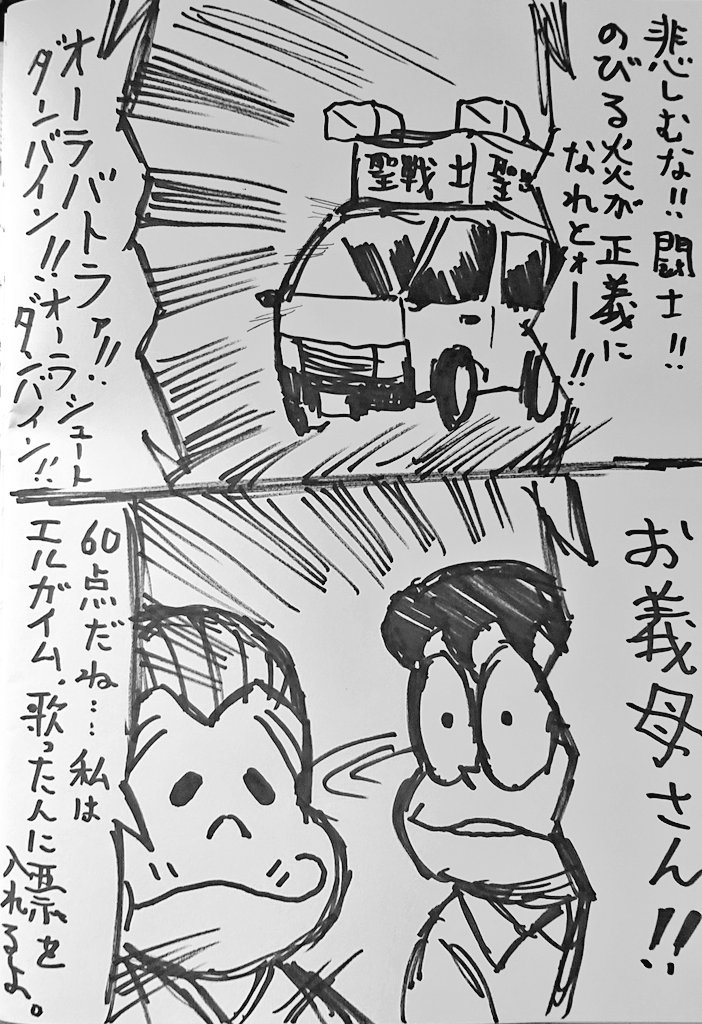 悲しむな!!闘士!!
のびる火が正義に
なれとォー!!
聖戦士
聖
オーラバトラァ!!
ダンバイン!!
オーラシュート
ダンバイン!!
お義母さん!!
60点だね…私は
エルガイム、歌った人に票を
入れるよ。